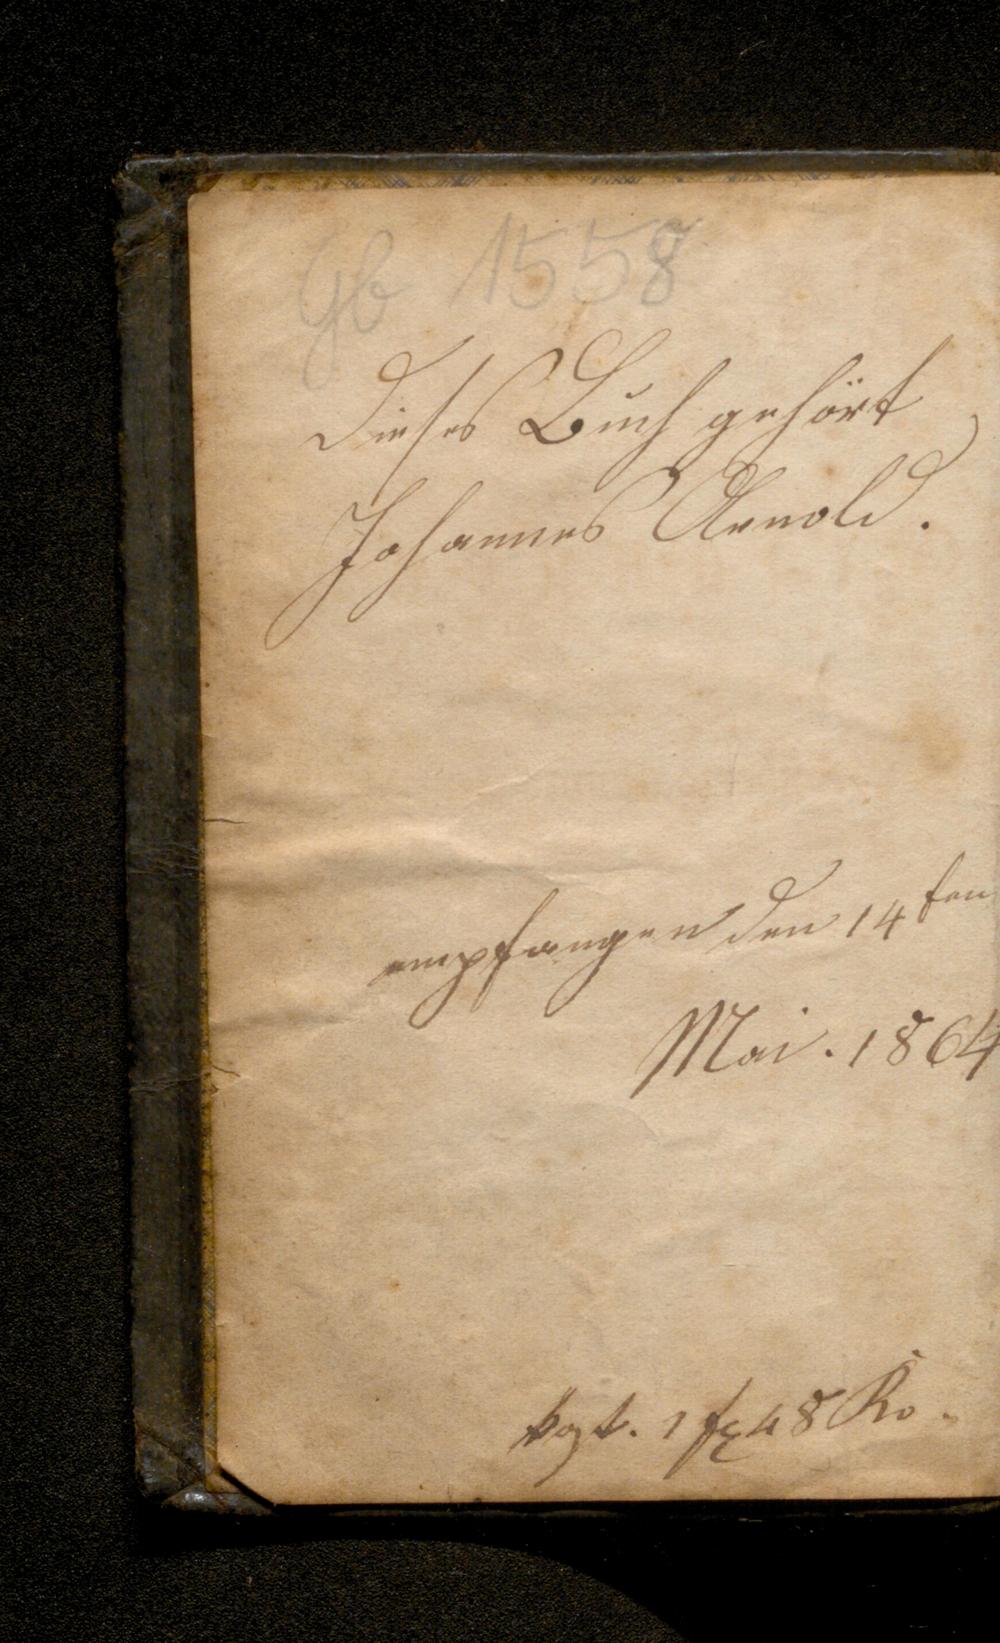 Gb 1558
Dieses Buch gehört
Johannes Arnold.
empfangen den 14ten
Mai. 1864
1 48